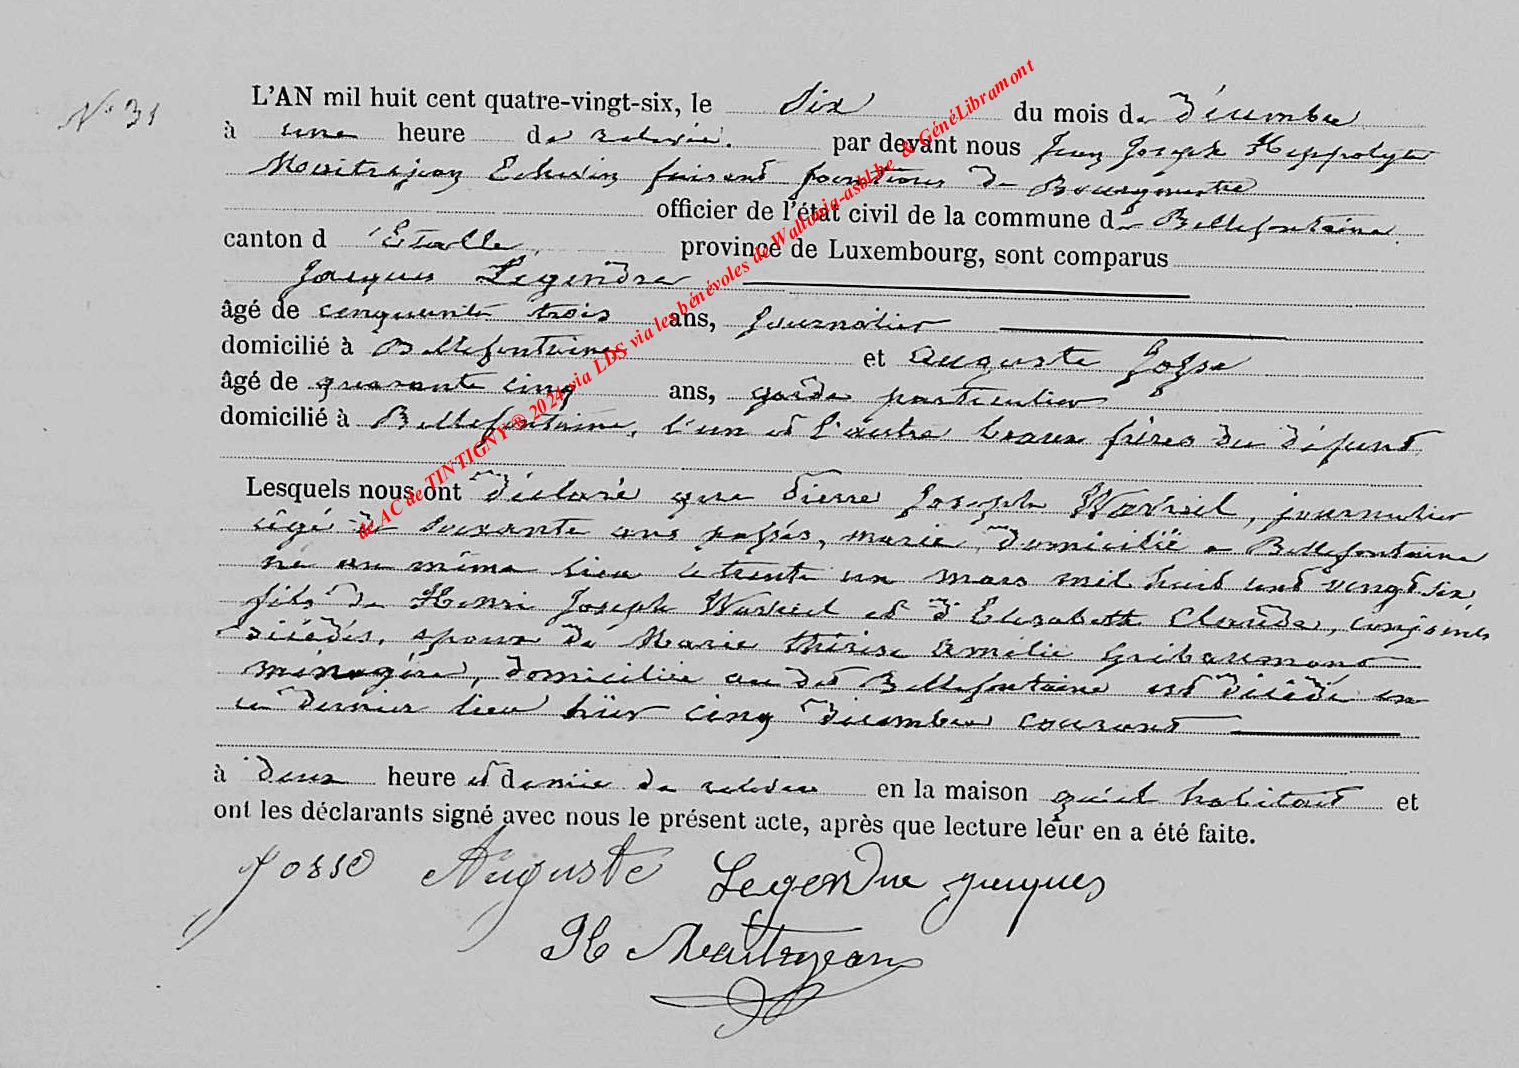 N° 31
L'AN mil huit cent quatre-vingt-six, le six du mois de décembre
à une heure de relevée. par devant nous Jean Joseph Hyppolyte
Maitrejean Echevin faisant fonctions de Bourgmestre
officier de l'état civil de la commune de Bellefontaine
canton d'Etalle, province de Luxembourg, sont comparus
Jacques Legendre
âgé de cinquante trois ans, journalier
domicilié à Bellefontaine et Auguste Josse
âgé de quarante cinq ans, garde particulier
domicilié à Bellefontaine, l'un et l'autre beaux frères du défunt
Lesquels nous ont déclaré que Pierre Joseph journalier
âgé de soixante ans passés, marié, domicilié à Bellefontaine
né au même lieu le trente un mars mil huit cent vingt six,
fils de Henri Joseph et d'Elisabeth Claude, conjoints
décédés, époux de Marie thérèse Amélie Gribaumont
ménagère, domiciliée au dit Bellefontaine est décédé en
ce dernier lieu hier cinq décembre courant
à deux heure et demie de relevée en la maison qu'il habitait et
ont les déclarants signé avec nous le présent acte, après que lecture leur en a été faite.
Josse Auguste Legendre jacques
H Maitrejean
de AC de TINTIGNY ® 2024 via LDS via les bénévoles de Wallonia-asbl.be & GénéLibramont